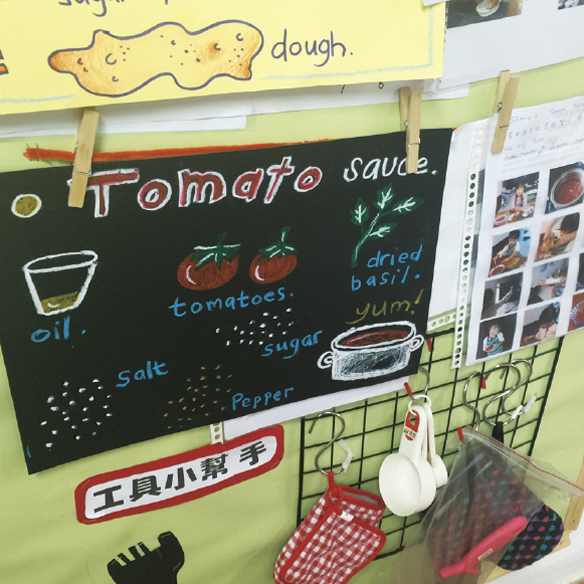 sugar
dough.
Tomato sauce.
oil.
tomatoes.
dried
basil.
yum!
sugar
salt
Pepper
工具小幫手